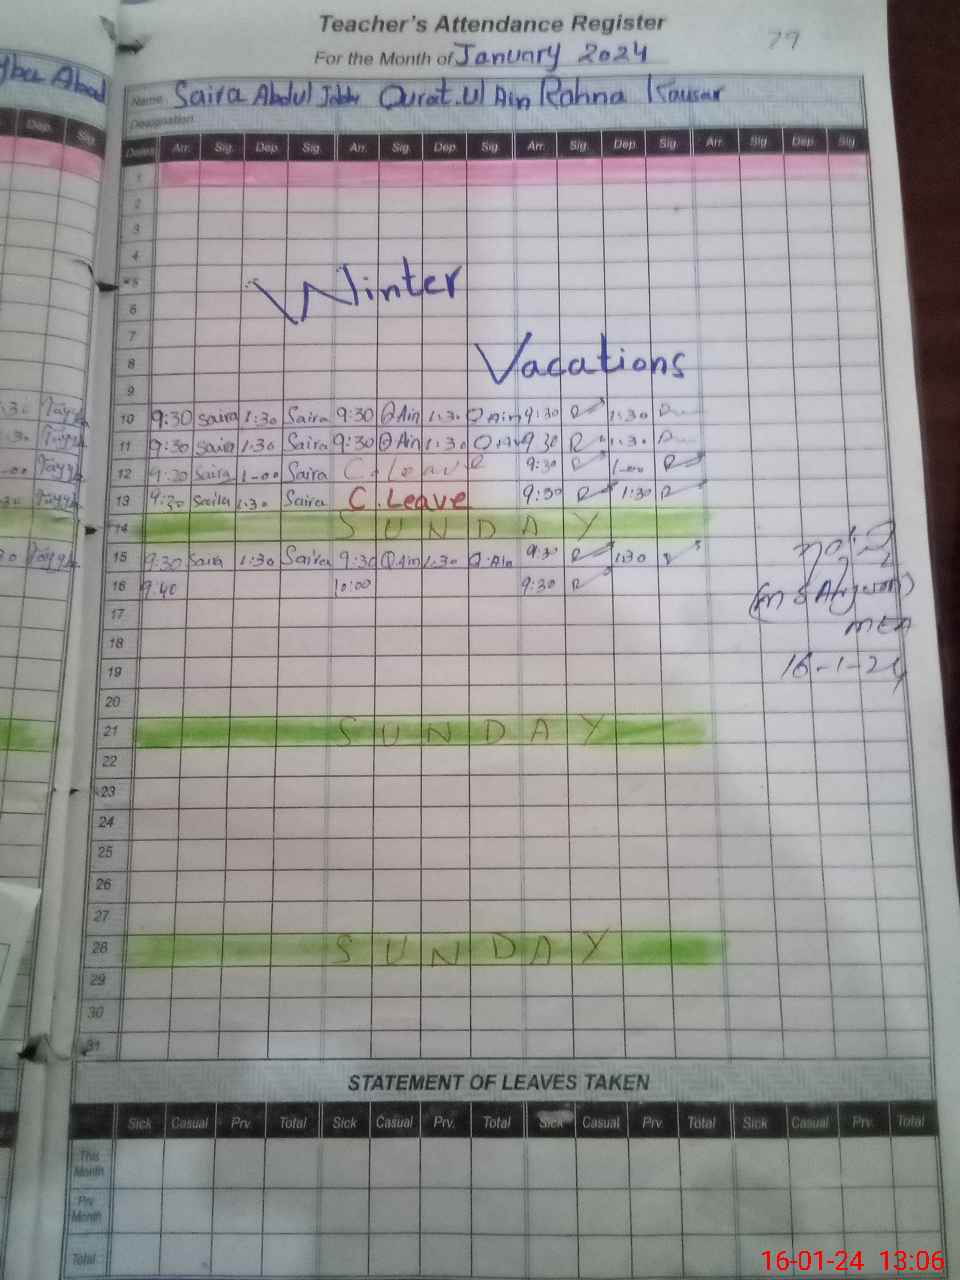 Teacher's Attendance Register
79
For the Month of January 2024
Name Saira Abdul Jabbar Qurat.Ul Ain Rahna Kousar
Designation
Dates Arr. Sig. Dep. Sig. Arr. Sig. Dep. Sig. Arr. Sig. Dep. Sig. Arr. Sig Dep. Sig
Dep. Sig.
1
2
3
4
5
Winter
6
7
Vacations
8
9
10 9:30 Saira 1:30 Saira 9:30 Q Ain 1:30 Q Ain 9:30 R 1:30 R
11 9:30 Saira 1:30 Saira 9:30 Q Ain 1:30 Q Ain 9:30 R 1:30 R
12 9:20 Saira 1-00 Saira C. Leave 9:30 R 1-00 R
13 9:20 Saira 1:30 Saira C. Leave 9:30 R 1:30 R
14 SUNDAY
15 9:30 Saira 1:30 Saira 9:30 Q.Ain 1:30 Q.Ain 9:30 R 1:30 R
16 9:40 10:00 9:30 R
17
MEA
18
16-1-24
19
20
21 SUNDAY
22
23
24
25
26
27
28 SUNDAY
29
30
31
STATEMENT OF LEAVES TAKEN
Sick Casual Prv. Total Sick Casual Prv. Total Sick Casual Prv. Total Sick Casual Prv. Total
This Month
Prv Month
Total
16-01-24 13:06